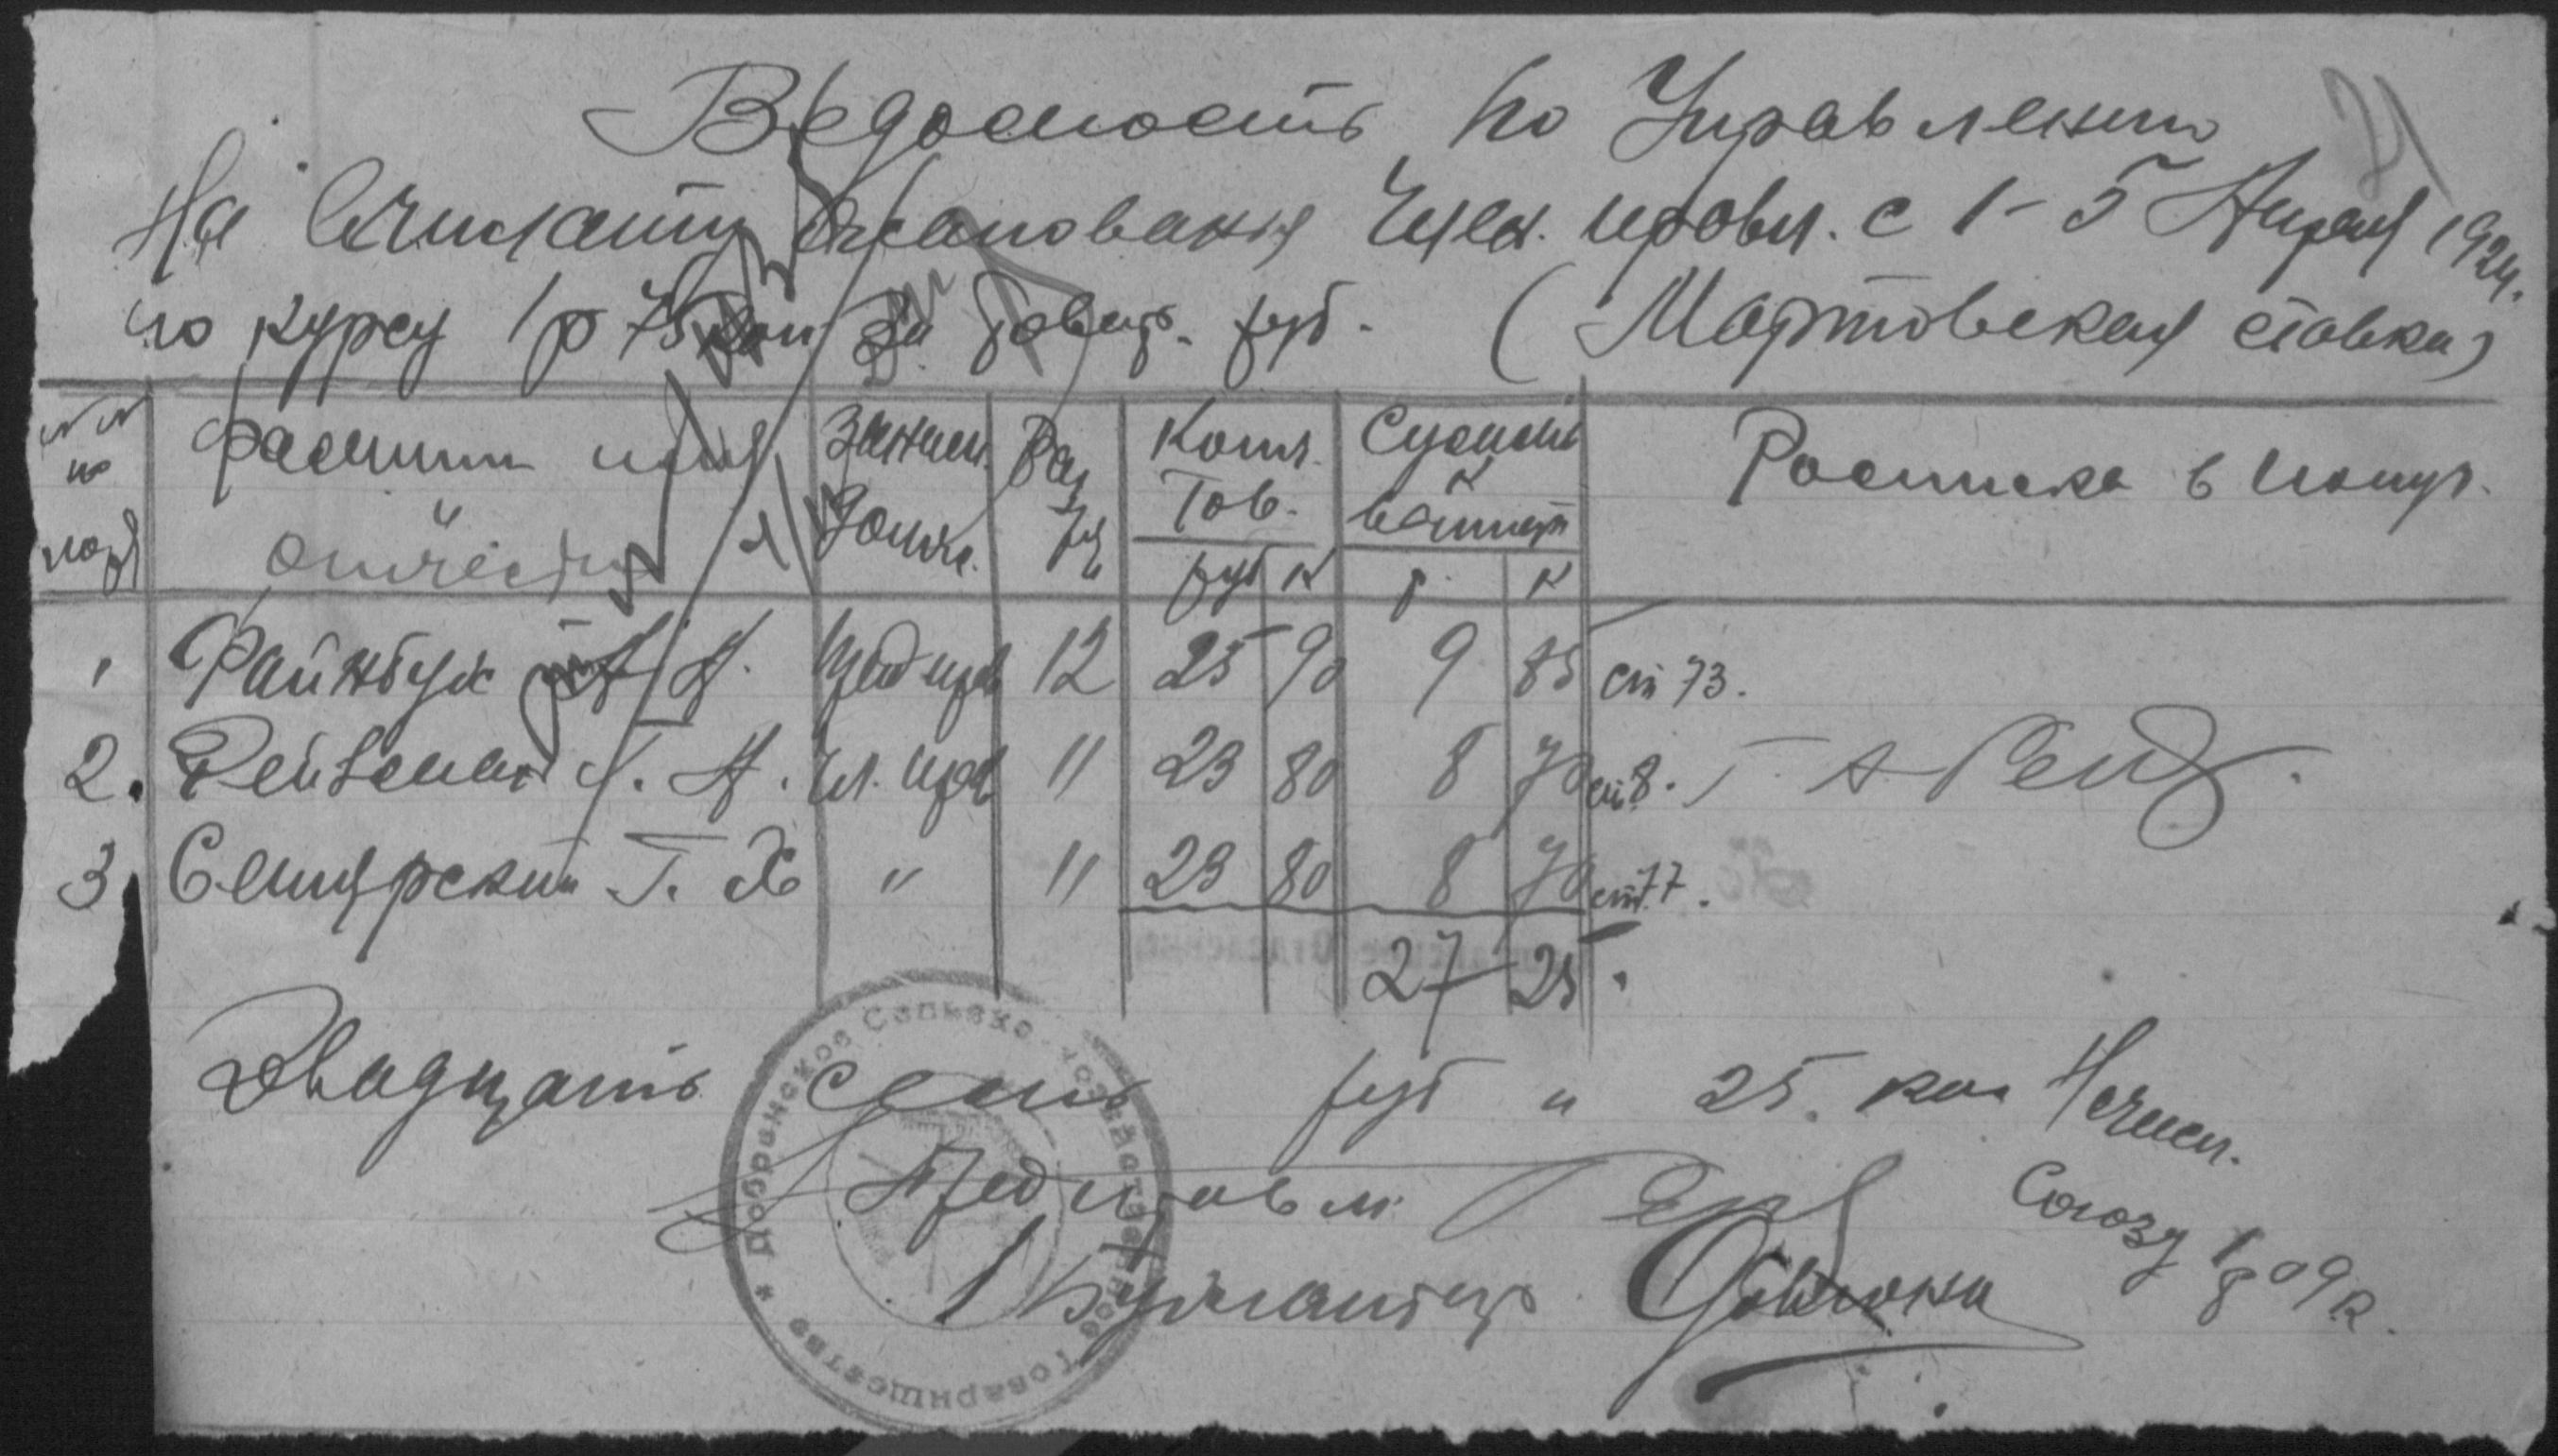 Ведомость по Управлению
На выплату жалования Член. правл. с 1-5 Апреля 1924.
по курсу 1 р 75 коп за товар. руб. (Мартовская ставка)
№№ по пор
фамилия имя и отчество
Занят. Долж.
Раз ряд
Колич. Тов.
руб к
Сумма к выплате
р. к
Росписка в получ.
1 Файнбух А. Пред прав 12 25 90 9 85 ст 73.
2. Рейзман Г. А. Чл. прав 11 23 80 8 70 ст 8. Г. А Рейз
3 Семиярский Г. Х " 11 23 80 8 70 ст 77.
27 25.
Двадцать семь руб и 25. коп
Начисл. Союзу 1 р 09 к.
Пред правл.
Бухгалтер
* Добрянское Сельско-хозяйственное Товарищество